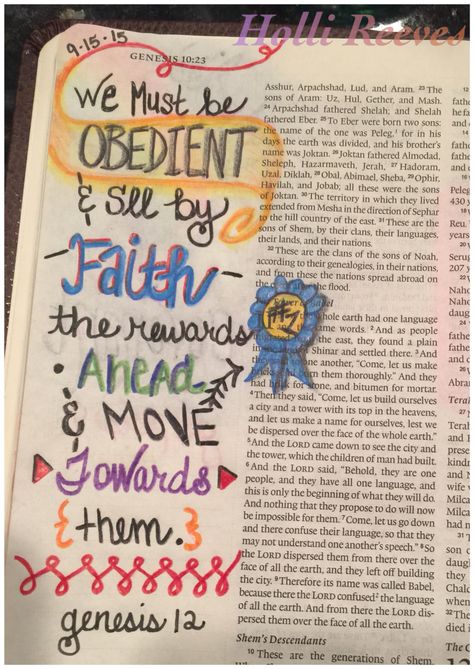 Holli Reeves
9-15-15
GENESIS 10:23
We Must be
OBEDIENT
& SEE by
-Faith-
the rewards
Ahead
& MOVE
Towards
{them.}
genesis 12
#1
Asshur, Arpachshad, Lud, and Aram. 23 The
sons of Aram: Uz, Hul, Gether, and Mash.
24 Arpachshad fathered Shelah; and Shelah
fathered Eber. 25 To Eber were born two sons:
the name of the one was Peleg, for in his
days the earth was divided, and his brother's
name was Joktan. 26 Joktan fathered Almodad,
Sheleph, Hazarmaveth, Jerah, 27 Hadoram,
Uzal, Diklah, 28 Obal, Abimael, Sheba, 29 Ophir,
Havilah, and Jobab; all these were the sons
of Joktan. 30 The territory in which they lived
extended from Mesha in the direction of Sephar
to the hill country of the east. 31 These are the
sons of Shem, by their clans, their languages,
their lands, and their nations.
32 These are the clans of the sons of Noah,
according to their genealogies, in their nations,
and from these the nations spread abroad on
the earth after the flood.
whole earth had one language
same words. 2 And as people
the east, they found a plain
Shinar and settled there. 3 And
to one another, "Come, let us make
them thoroughly." And they
had for stone, and bitumen for mortar.
4 Then they said, "Come, let us build ourselves
a city and a tower with its top in the heavens,
and let us make a name for ourselves, lest we
be dispersed over the face of the whole earth."
5 And the LORD came down to see the city and
the tower, which the children of man had built.
6 And the LORD said, "Behold, they are one
people, and they have all one language, and
this is only the beginning of what they will do.
And nothing that they propose to do will now
be impossible for them. 7 Come, let us go down
and there confuse their language, so that they
may not understand one another's speech." 8 So
the LORD dispersed them from there over the
face of all the earth, and they left off building
the city. 9 Therefore its name was called Babel,
because there the LORD confused the language
of all the earth. And from there the LORD dis-
persed them over the face of all the earth.
Shem's Descendants
10 These are the generations of Shem.